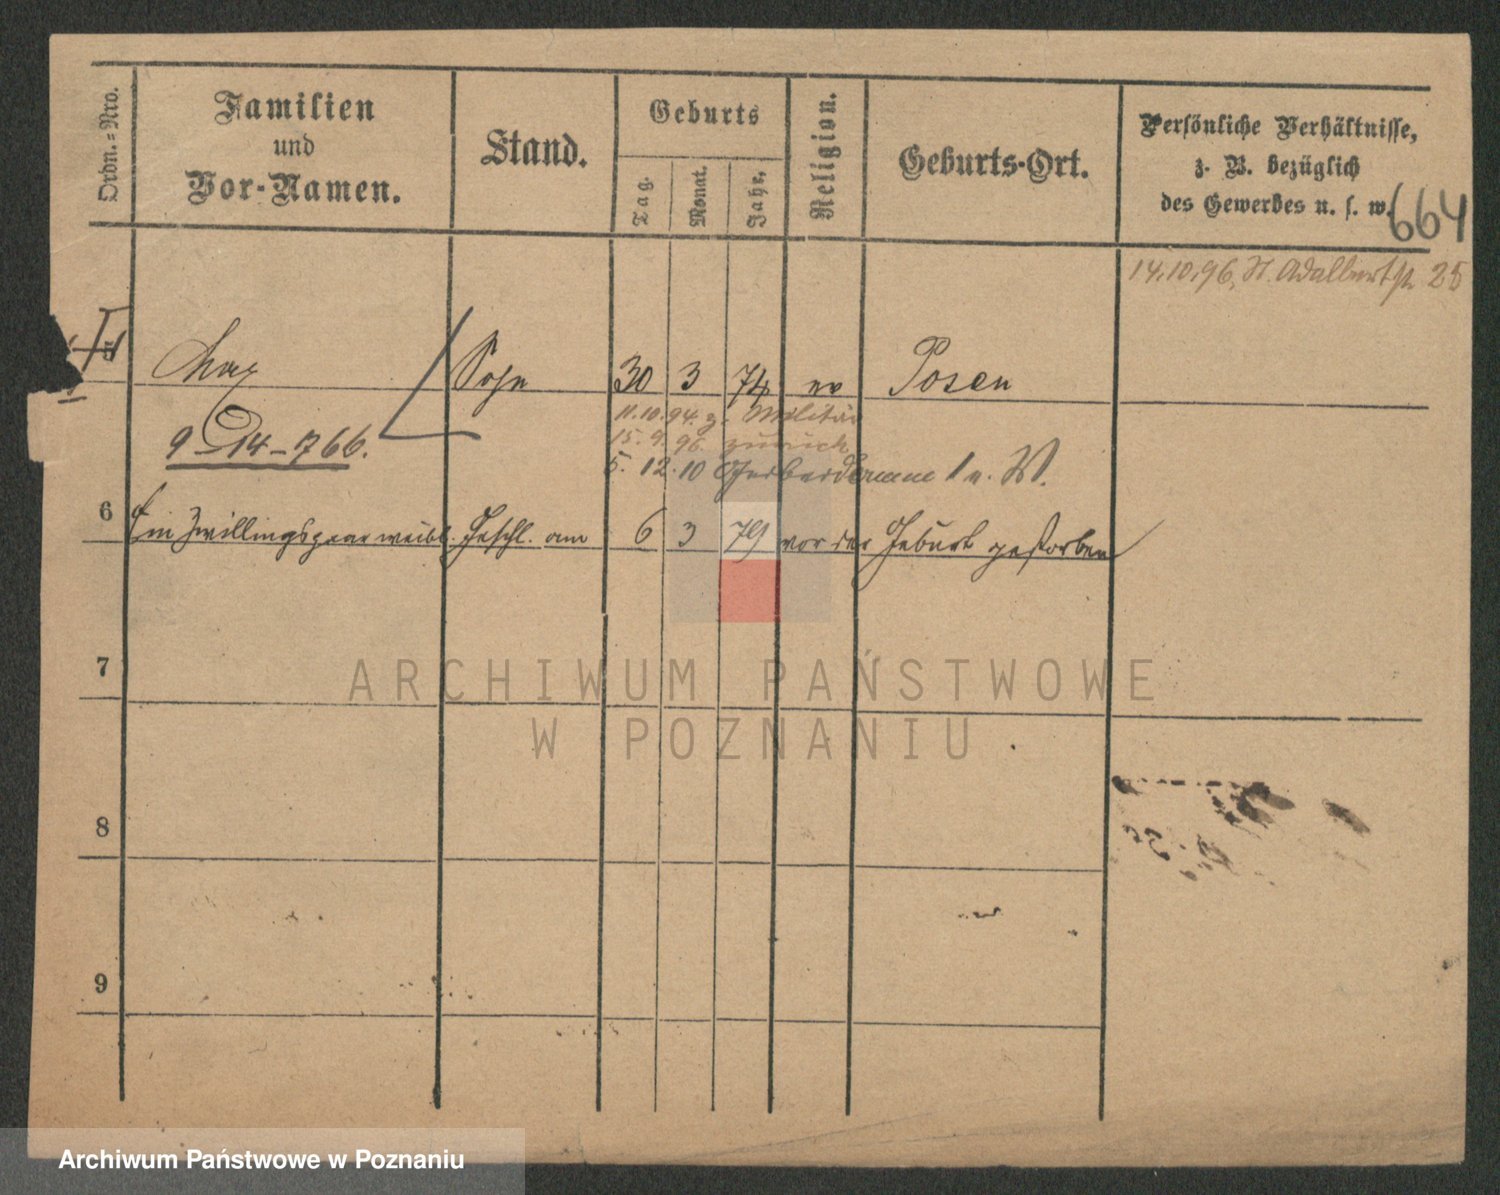 Ordn.=Nro.
Familien
und
Vor-Namen.
Stand.
Geburts
Tag.
Monat.
Jahr.
Religion.
Geburts-Ort.
Persönliche Verhältnisse,
z. B. bezüglich
des Gewerbes u. s. w.
664
14.10.96, St. Adalbertstr. 25
5 Max Sohn 30 3 74 ev Posen
11.10.94. z. Militär
9-14-766.
15.9.96. zurück
5. 12. 10
6 Ein Zwillingspaar weibl. Geschl. am 6 3 79 vor der Geburt gestorben
7
ARCHIWUM PAŃSTWOWE
W POZNANIU
8
9
Archiwum Państwowe w Poznaniu